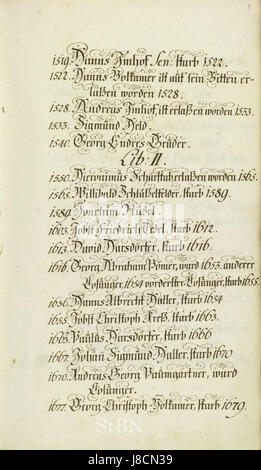 1519. Hanns Imhof. Sen: starb 1522.
1522. Hanns Volkamer ist auf sein Bitten er-
laßen worden 1528.
1528. Andreas Imhof, ist erlaßen worden 1533.
1533. Sigmund Held.
1540. Georg Endres
Lib: II.
1550. Hieronimus erlaßen worden 1565.
1565. Willibald Schlüßelfelder, starb 1589.
1589. Joachim Nüzel.
1603. Jobst Friedrich Tezel, starb 1612.
1613. David Harsdörfer, starb 1616.
1616. Georg Abraham Pömer, ward 1653. anderer
Losunger, 1654 vorderster Losunger, starb 1655.
1636. Hanns Albrecht Haller, starb 1654
1655. Jobst Christoph Kreß, starb 1663.
1663. Paulus Harsdörfer, starb 1666
1667. Johann Sigmund Haller, starb 1670
1670. Andreas Georg Paumgartner, ward
Losunger.
1677. Georg Christoph Volkamer, starb 1679.
StBN
alamy
J8CN39